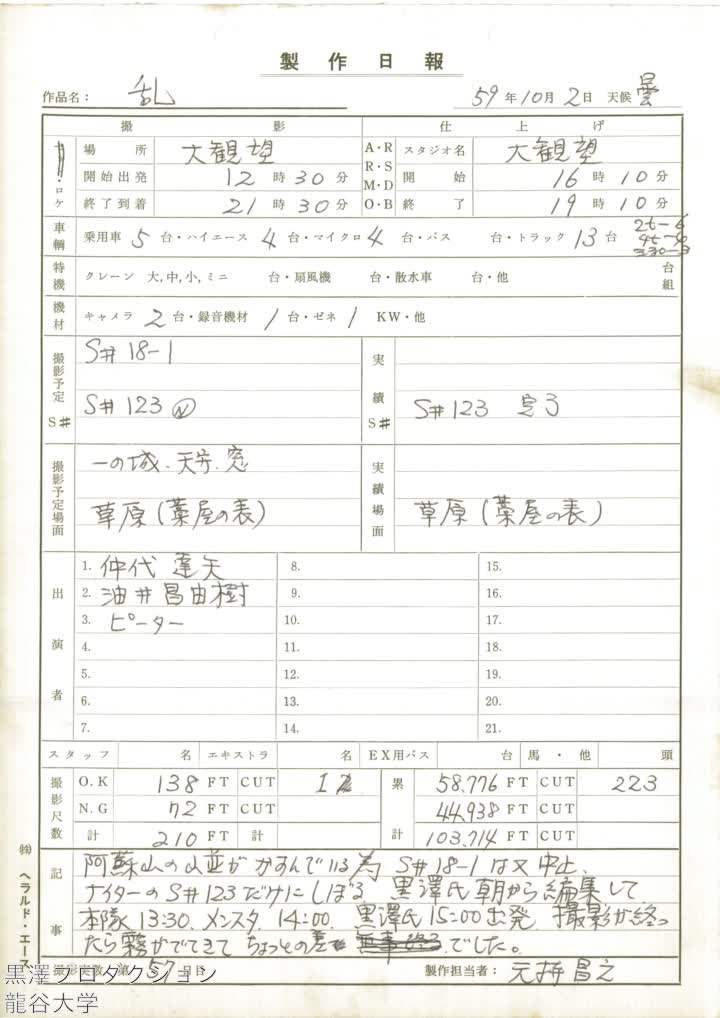 製作日報
作品名： 乱 59年10月2日 天候 曇
撮影 仕上げ
ロケ 場所 大観望 A・R スタジオ名 大観望
開始出発 12時30分 R・S M・D 開始 16時10分
終了到着 21時30分 O・B 終了 19時10分
車輌 乗用車 5台・ハイエース 4台・マイクロ 4台・バス 台・トラック 13台
特機 クレーン 大,中,小,ミニ 台・扇風機 台・散水車 台・他 台組
機材 キャメラ 2台・録音機材 1台・ゼネ 1 KW・他
撮影予定 S# S#18-1 実績 S#
S#123 Ⓝ S#123 完了
撮影予定場面 一の城.天守.窓 実績場面
草原(藁屋の表) 草原(藁屋の表)
出演者 1. 仲代達矢 8. 15.
2. 油井昌由樹 9. 16.
3. ピーター 10. 17.
4. 11. 18.
5. 12. 19.
6. 13. 20.
7. 14. 21.
スタッフ 名 エキストラ 名 EX用バス 台 馬・他 頭
撮影尺数 O.K 138 FT CUT 1 累計 58.776 FT CUT 223
N.G 72 FT CUT 44.938 FT CUT
計 210 FT 計 103.714 FT
記事 阿蘇山の山並がかすんでいる為 S#18-1は又中止.
ナイターのS#123だけにしぼる 黒澤氏朝から編集して
本隊13:30.メンスタ14:00.黒澤氏15:00出発.撮影が終っ
たら霧がでてきてちょっとの差でした。
撮影実数 第57日目 製作担当者： 元持昌之
㈱ヘラルド・エース
黒澤プロダクション
龍谷大学